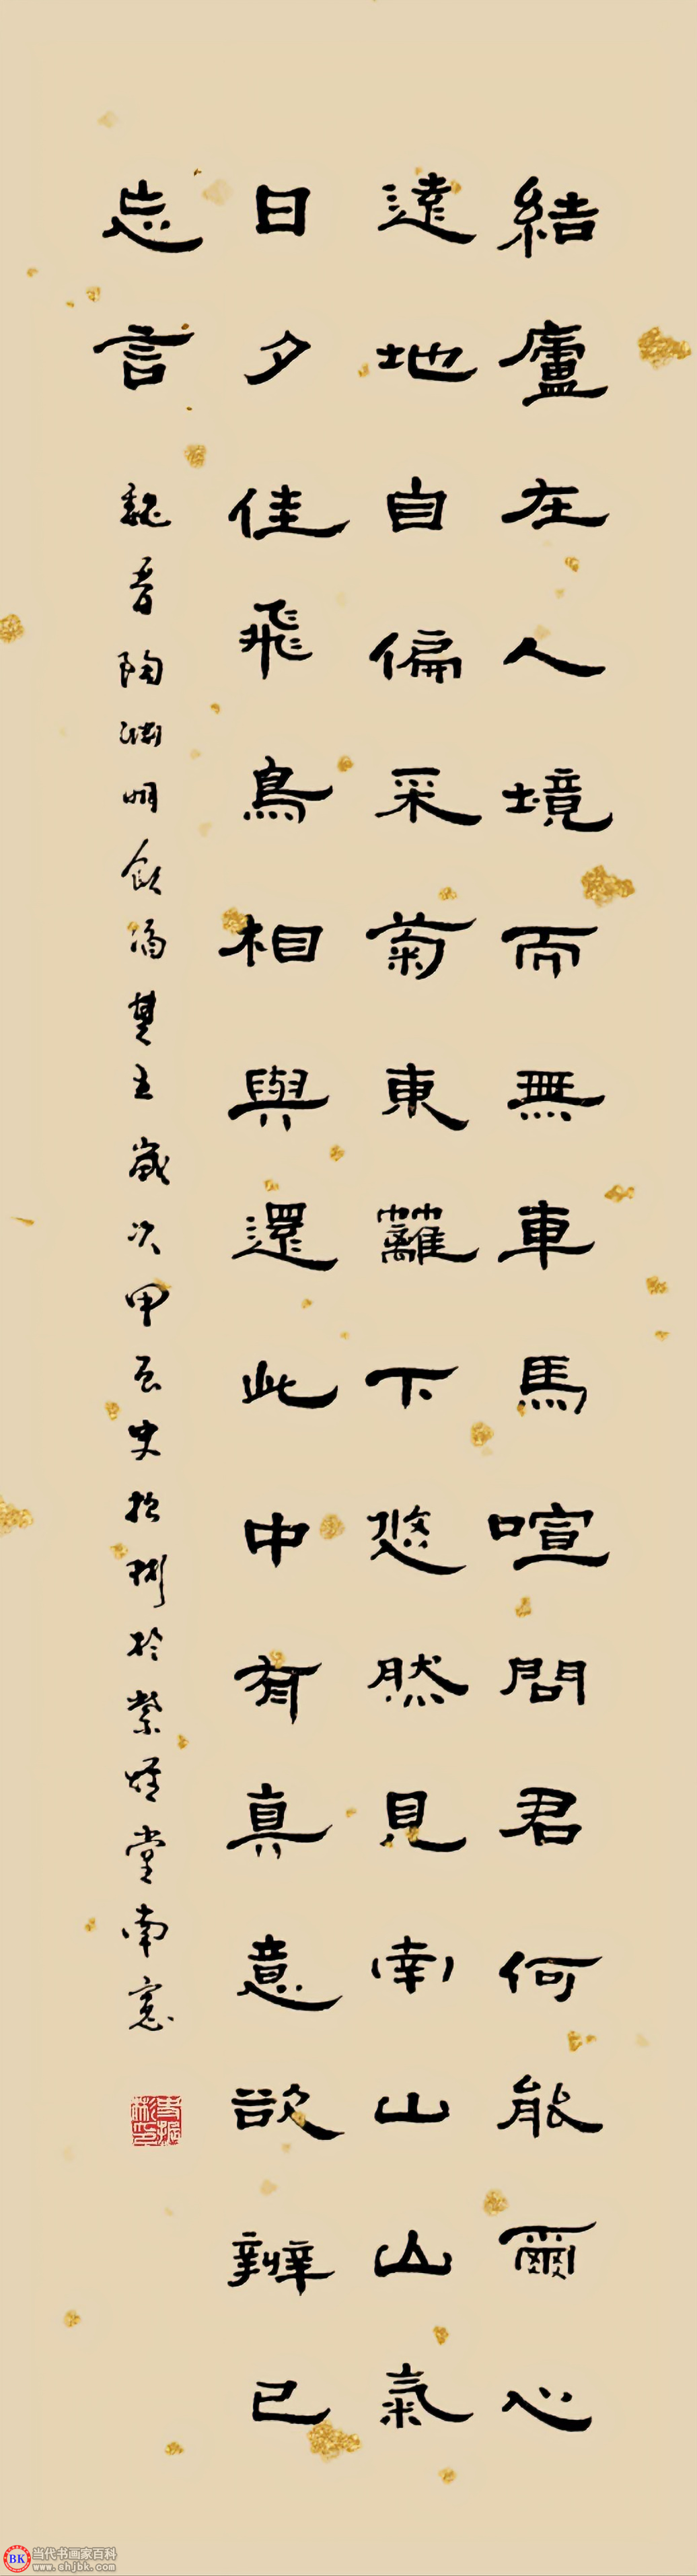 結廬在人境而無車馬喧問君何能爾心
遠地自偏采菊東蘺下悠然見南山山氣
日夕佳飛鳥相與還此中有真意欲辯已
忘言
魏晋陶渊明飲酒其五歲次甲辰史振彬於紫煙堂南窓
当代书画家百科
www.shjbk.com
BK